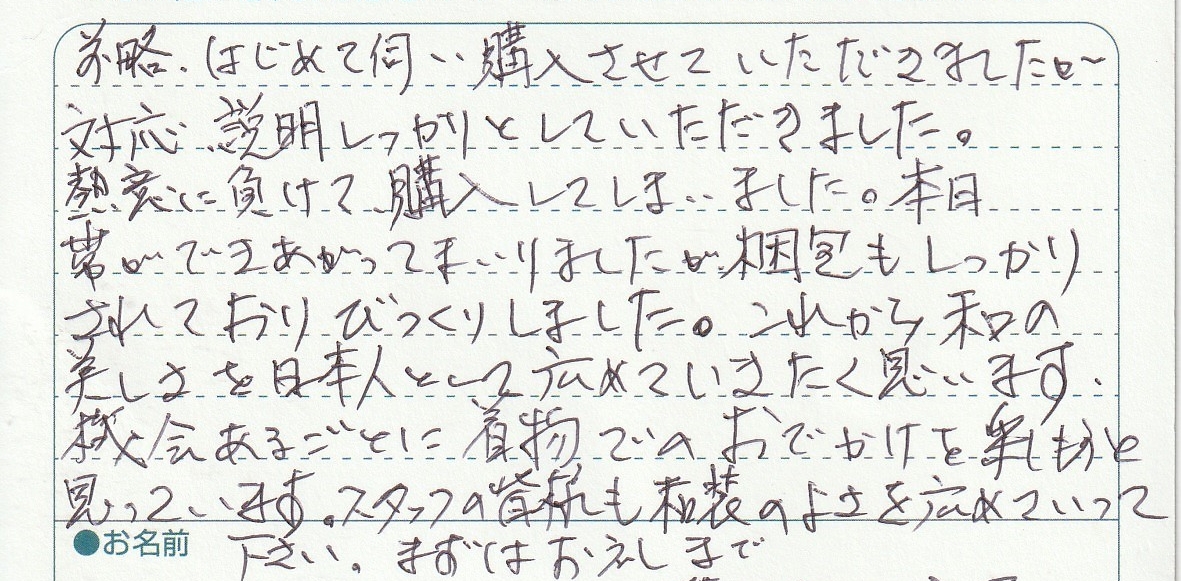 前略、はじめて伺い購入させていただきましたが
対応、説明しっかりとしていただきました。
熱意に負けて、購入してしまいました。本日
帯ができあがってまいりましたが、梱包もしっかり
されておりびっくりしました。これから和の
美しさを日本人として広めていきたく思います.
機会あるごとに着物でのおでかけを楽しもうと
思っています。スタッフの皆様も和装のよさを広めていって
●お名前 下さい。まずはお礼まで